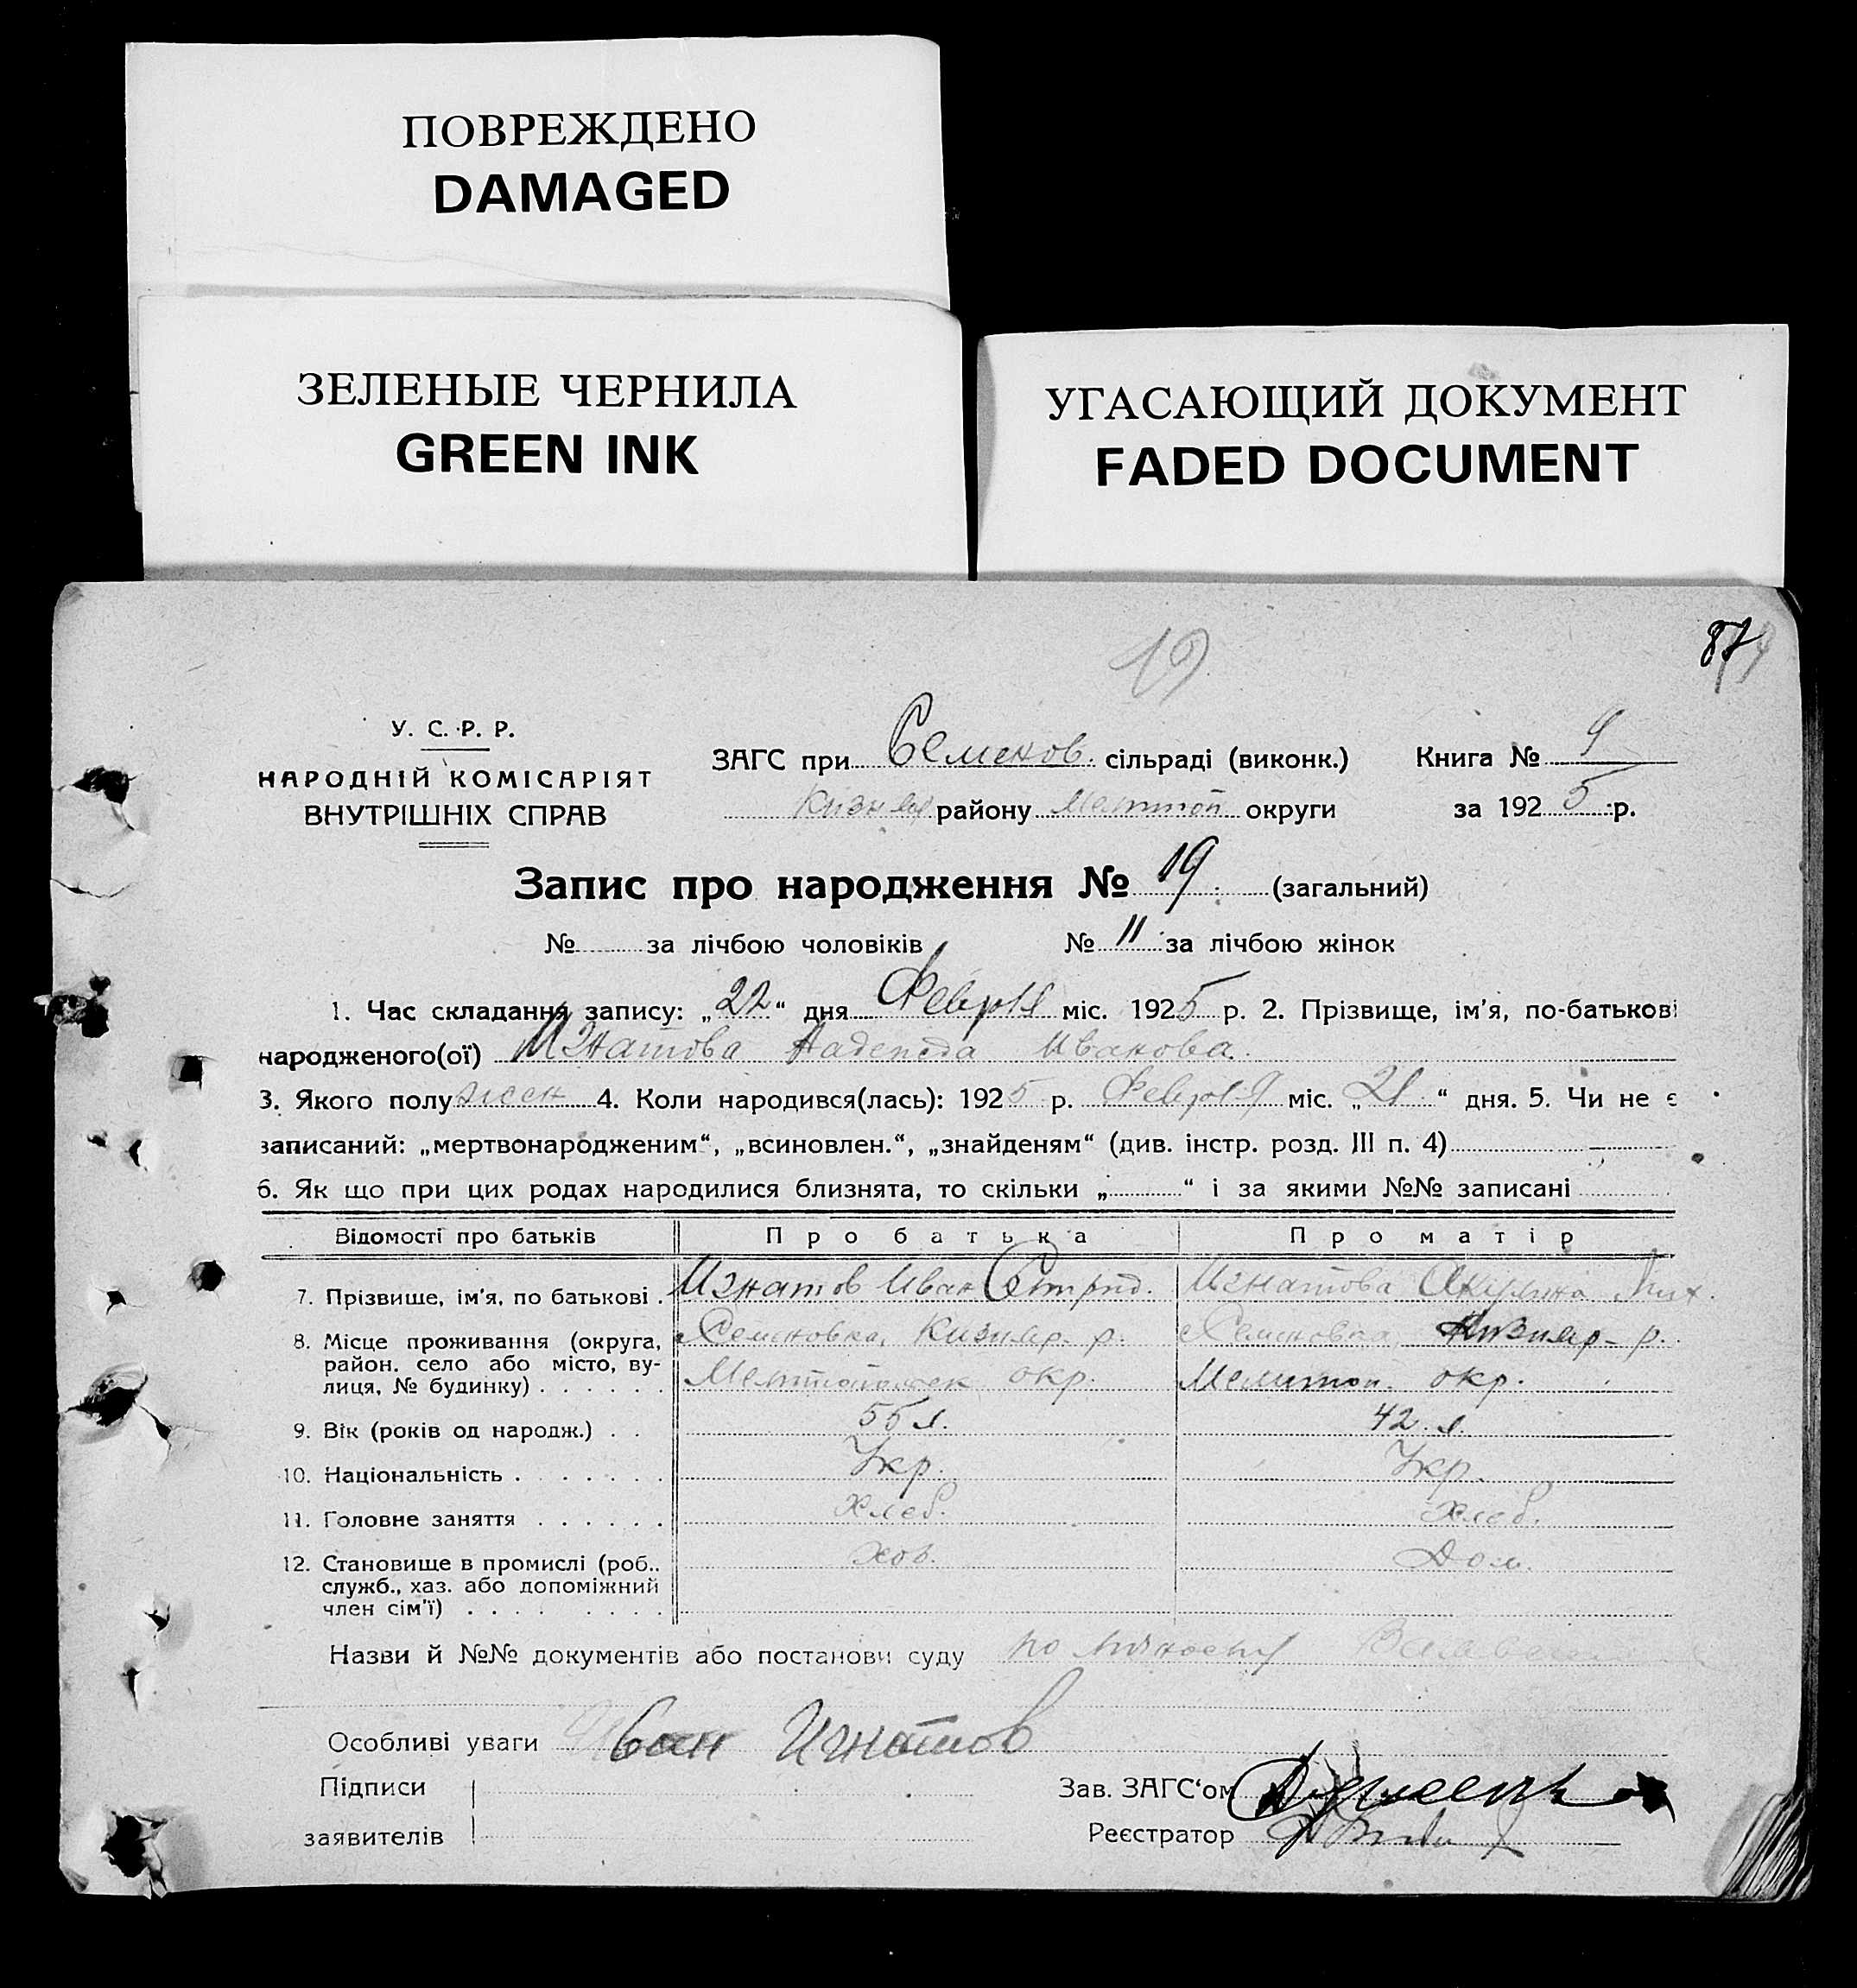 ПОВРЕЖДЕНО
DAMAGED
ЗЕЛЕНЫЕ ЧЕРНИЛА
GREEN INK
УГАСАЮЩИЙ ДОКУМЕНТ
FADED DOCUMENT
19
87
У. С. Р. Р.
НАРОДНІЙ КОМІСАРІЯТ
ВНУТРІШНІХ СПРАВ
ЗАГС при Семенов. сільраді (виконк.) Книга №
району округи за 1925 р.
Запис про народження № 19. (загальний)
№ за лічбою чоловіків № 11 за лічбою жінок
1. Час складання запису: „22“ дня Февр́ля міс. 1925 р. 2. Прізвище, ім'я, по-батькові
народженого(ої) Игнатова Надежда Иванова.
3. Якого полу жен 4. Коли народився(лась): 1925 р. міс. „21“ дня. 5. Чи не є
записаний: „мертвонародженим“, „всиновлен.“, „знайденям“ (див. інстр. розд. III п. 4)
6. Як що при цих родах народилися близнята, то скільки „ “ і за якими №№ записані
Відомості про батьків Про батька Про матір
7. Прізвише, ім'я, по батькові . Игнатов Иван Игнатова Акулина
8. Місце проживання (округа, Семеновка, Кизияр. р. Семеновка, Кизияр- р.
район. село або місто, ву-
лиця, № будинку) . . . . . . окр. Мелитоп. окр.
9. Вік (років од народж.) . . 55 л. 42 л.
10. Національність . . . . . . . Укр. Укр.
11. Головне заняття . . . . . . Хлеб. Хлеб.
12. Становище в промислі (роб., хоз. Дом.
служб., хаз. або допоміжний
член сім'ї) . . . . . . . . .
Назви й №№ документів або постанови суду по
Особливі уваги Иван Игнатов
Підписи
заявителів
Зав. ЗАГС‘ом
Реєстратор